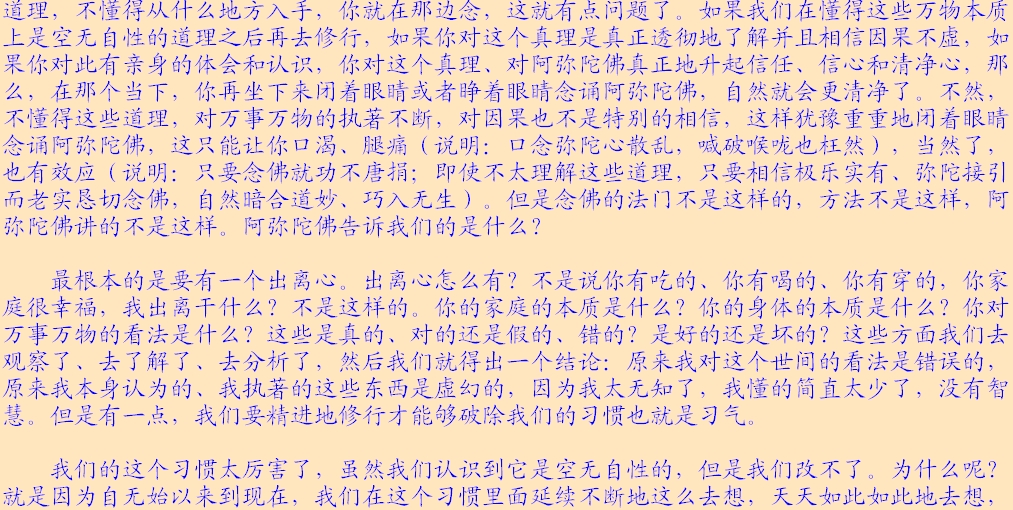 道理，不懂得从什么地方入手，你就在那边念，这就有点问题了。如果我们在懂得这些万物本质
上是空无自性的道理之后再去修行，如果你对这个真理是真正透彻地了解并且相信因果不虚，如
果你对此有亲身的体会和认识，你对这个真理、对阿弥陀佛真正地升起信任、信心和清净心，那
么，在那个当下，你再坐下来闭着眼睛或者睁着眼睛念诵阿弥陀佛，自然就会更清净了。不然，
不懂得这些道理，对万事万物的执著不断，对因果也不是特别的相信，这样犹豫重重地闭着眼睛
念诵阿弥陀佛，这只能让你口渴、腿痛（说明：口念弥陀心散乱，喊破喉咙也枉然），当然了，
也有效应（说明：只要念佛就功不唐捐；即使不太理解这些道理，只要相信极乐实有、弥陀接引
而老实恳切念佛，自然暗合道妙、巧入无生）。但是念佛的法门不是这样的，方法不是这样，阿
弥陀佛讲的不是这样。阿弥陀佛告诉我们的是什么？
最根本的是要有一个出离心。出离心怎么有？不是说你有吃的、你有喝的、你有穿的，你家
庭很幸福，我出离干什么？不是这样的。你的家庭的本质是什么？你的身体的本质是什么？你对
万事万物的看法是什么？这些是真的、对的还是假的、错的？是好的还是坏的？这些方面我们去
观察了、去了解了、去分析了，然后我们就得出一个结论：原来我对这个世间的看法是错误的，
原来我本身认为的、我执著的这些东西是虚幻的，因为我太无知了，我懂的简直太少了，没有智
慧。但是有一点，我们要精进地修行才能够破除我们的习惯也就是习气。
我们的这个习惯太厉害了，虽然我们认识到它是空无自性的，但是我们改不了。为什么呢？
就是因为自无始以来到现在，我们在这个习惯里面延续不断地这么去想，天天如此如此地去想，